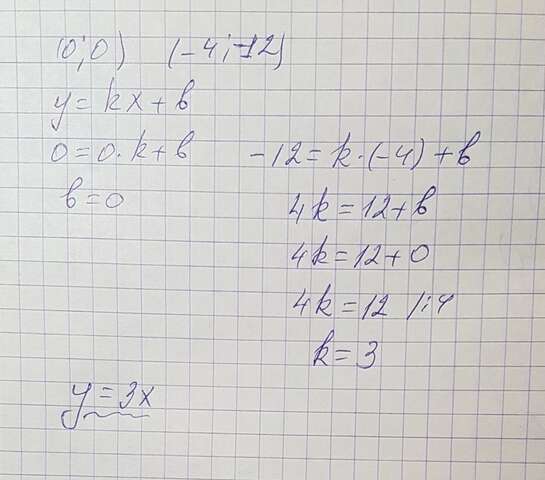 (0;0) (-4;-12)
y = kx + b
0 = 0·k + b -12 = k·(-4) + b
b = 0 4k = 12 + b
4k = 12 + 0
4k = 12 /:4
k = 3
y = 3x